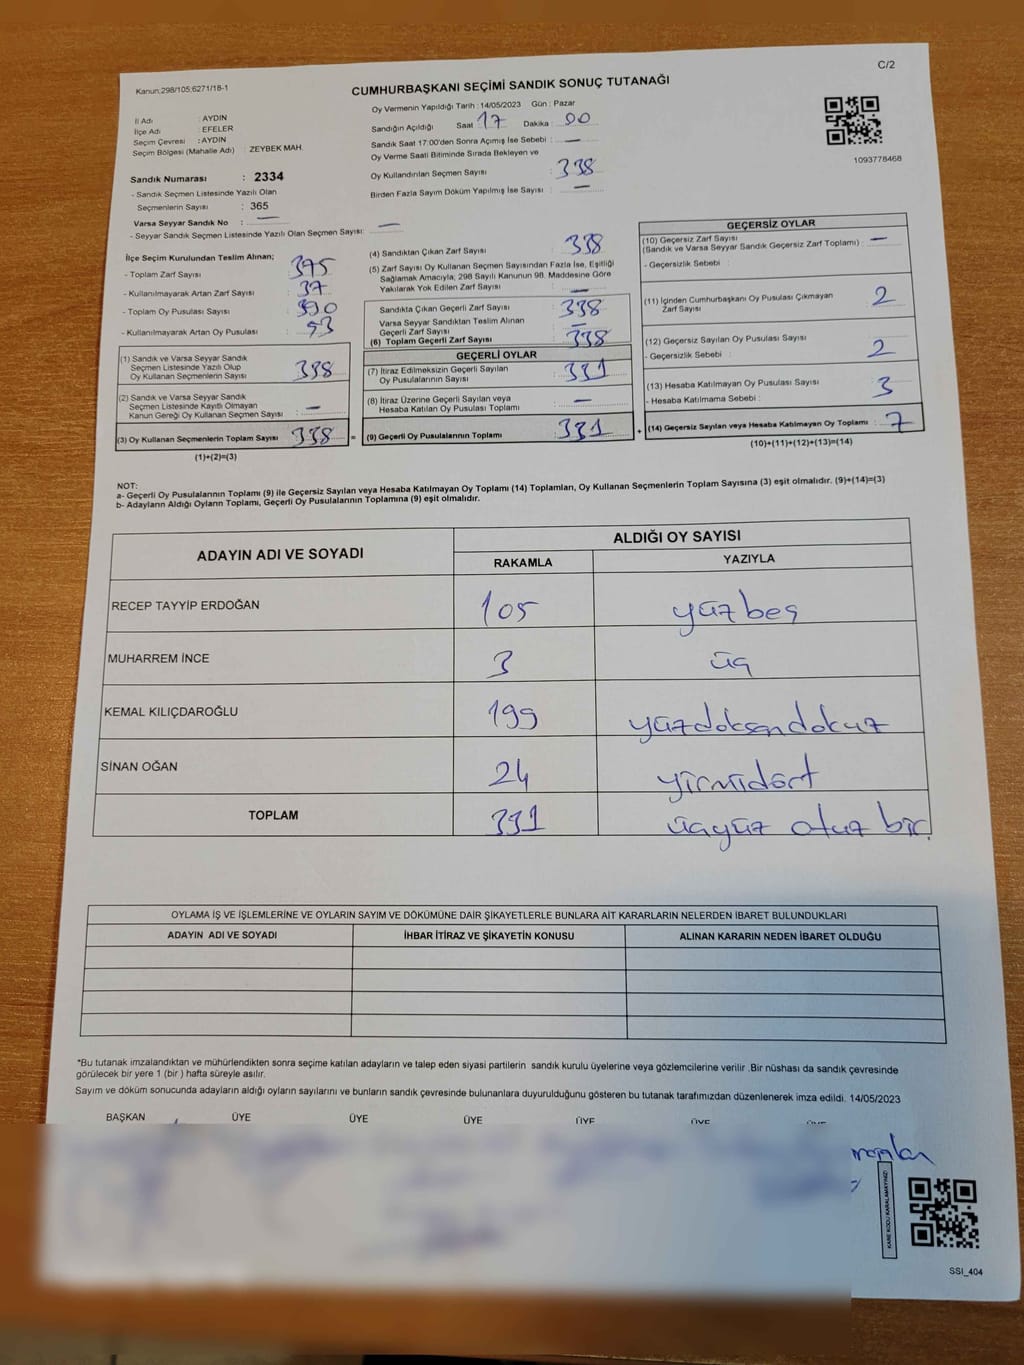 C/2
Kanun,298/105;6271/18-1
CUMHURBAŞKANI SEÇİMİ SANDIK SONUÇ TUTANAĞI
İl Adı : AYDIN
İlçe Adı : EFELER
Seçim Çevresi : AYDIN
Seçim Bölgesi (Mahalle Adı) : ZEYBEK MAH.
Sandık Numarası : 2334
- Sandık Seçmen Listesinde Yazılı Olan
Seçmenlerin Sayısı : 365
Varsa Seyyar Sandık No : —
- Seyyar Sandık Seçmen Listesinde Yazılı Olan Seçmen Sayısı: —
Oy Vermenin Yapıldığı Tarih : 14/05/2023 Gün : Pazar
Sandığın Açıldığı Saat : 17 Dakika : 00
Sandık Saat 17:00'den Sonra Açımış İse Sebebi : —
Oy Verme Saati Bitiminde Sırada Bekleyen ve
Oy Kullandırılan Seçmen Sayısı : 338
Birden Fazla Sayım Döküm Yapılmış İse Sayısı : —
1093778468
İlçe Seçim Kurulundan Teslim Alınan;
- Toplam Zarf Sayısı : 375
- Kullanılmayarak Artan Zarf Sayısı : 37
- Toplam Oy Pusulası Sayısı : 390
- Kullanılmayarak Artan Oy Pusulası : 53
(1) Sandık ve Varsa Seyyar Sandık
Seçmen Listesinde Yazılı Olup
Oy Kullanan Seçmenlerin Sayısı : 338
(2) Sandık ve Varsa Seyyar Sandık
Seçmen Listesinde Kayıtlı Olmayan
Kanun Gereği Oy Kullanan Seçmen Sayısı : —
(3) Oy Kullanan Seçmenlerin Toplam Sayısı : 338 =
(1)+(2)=(3)
(4) Sandıktan Çıkan Zarf Sayısı : 338
(5) Zarf Sayısı Oy Kullanan Seçmen Sayısından Fazla İse, Eşitliği
Sağlamak Amacıyla, 298 Sayılı Kanunun 98. Maddesine Göre
Yakılarak Yok Edilen Zarf Sayısı : —
Sandıkta Çıkan Geçerli Zarf Sayısı : 338
Varsa Seyyar Sandıktan Teslim Alınan
Geçerli Zarf Sayısı : —
(6) Toplam Geçerli Zarf Sayısı : 338
GEÇERLİ OYLAR
(7) İtiraz Edilmeksizin Geçerli Sayılan
Oy Pusulalarının Sayısı : 331
(8) İtiraz Üzerine Geçerli Sayılan veya
Hesaba Katılan Oy Pusulası Toplamı : —
(9) Geçerli Oy Pusulalarının Toplamı : 331 +
GEÇERSİZ OYLAR
(10) Geçersiz Zarf Sayısı
(Sandık ve Varsa Seyyar Sandık Geçersiz Zarf Toplamı) : —
- Geçersizlik Sebebi :
(11) İçinden Cumhurbaşkanı Oy Pusulası Çıkmayan
Zarf Sayısı : 2
(12) Geçersiz Sayılan Oy Pusulası Sayısı : 2
- Geçersizlik Sebebi :
(13) Hesaba Katılmayan Oy Pusulası Sayısı : 3
- Hesaba Katılmama Sebebi :
(14) Geçersiz Sayılan veya Hesaba Katılmayan Oy Toplamı : 7
(10)+(11)+(12)+(13)=(14)
NOT:
a- Geçerli Oy Pusulalarının Toplamı (9) ile Geçersiz Sayılan veya Hesaba Katılmayan Oy Toplamı (14) Toplamları, Oy Kullanan Seçmenlerin Toplam Sayısına (3) eşit olmalıdır. (9)+(14)=(3)
b- Adayların Aldığı Oyların Toplamı, Geçerli Oy Pusulalarının Toplamına (9) eşit olmalıdır.
ADAYIN ADI VE SOYADI
ALDIĞI OY SAYISI
RAKAMLA YAZIYLA
RECEP TAYYİP ERDOĞAN 105 yüzbeş
MUHARREM İNCE 3 üç
KEMAL KILIÇDAROĞLU 199 yüzdoksandokuz
SİNAN OĞAN 24 yirmidört
TOPLAM 331 üçyüz otuz bir
OYLAMA İŞ VE İŞLEMLERİNE VE OYLARIN SAYIM VE DÖKÜMÜNE DAİR ŞİKAYETLERLE BUNLARA AİT KARARLARIN NELERDEN İBARET BULUNDUKLARI
ADAYIN ADI VE SOYADI İHBAR İTİRAZ VE ŞİKAYETİN KONUSU ALINAN KARARIN NEDEN İBARET OLDUĞU
*Bu tutanak imzalandıktan ve mühürlendikten sonra seçime katılan adayların ve talep eden siyasi partilerin sandık kurulu üyelerine veya gözlemcilerine verilir .Bir nüshası da sandık çevresinde
görülecek bir yere 1 (bir) hafta süreyle asılır.
Sayım ve döküm sonucunda adayların aldığı oyların sayılarını ve bunların sandık çevresinde bulunanlara duyurulduğunu gösteren bu tutanak tarafımızdan düzenlenerek imza edildi. 14/05/2023
BAŞKAN ÜYE ÜYE ÜYE ÜYE ÜYE
KARE KODU KARALAMAYINIZ!
SSI_404